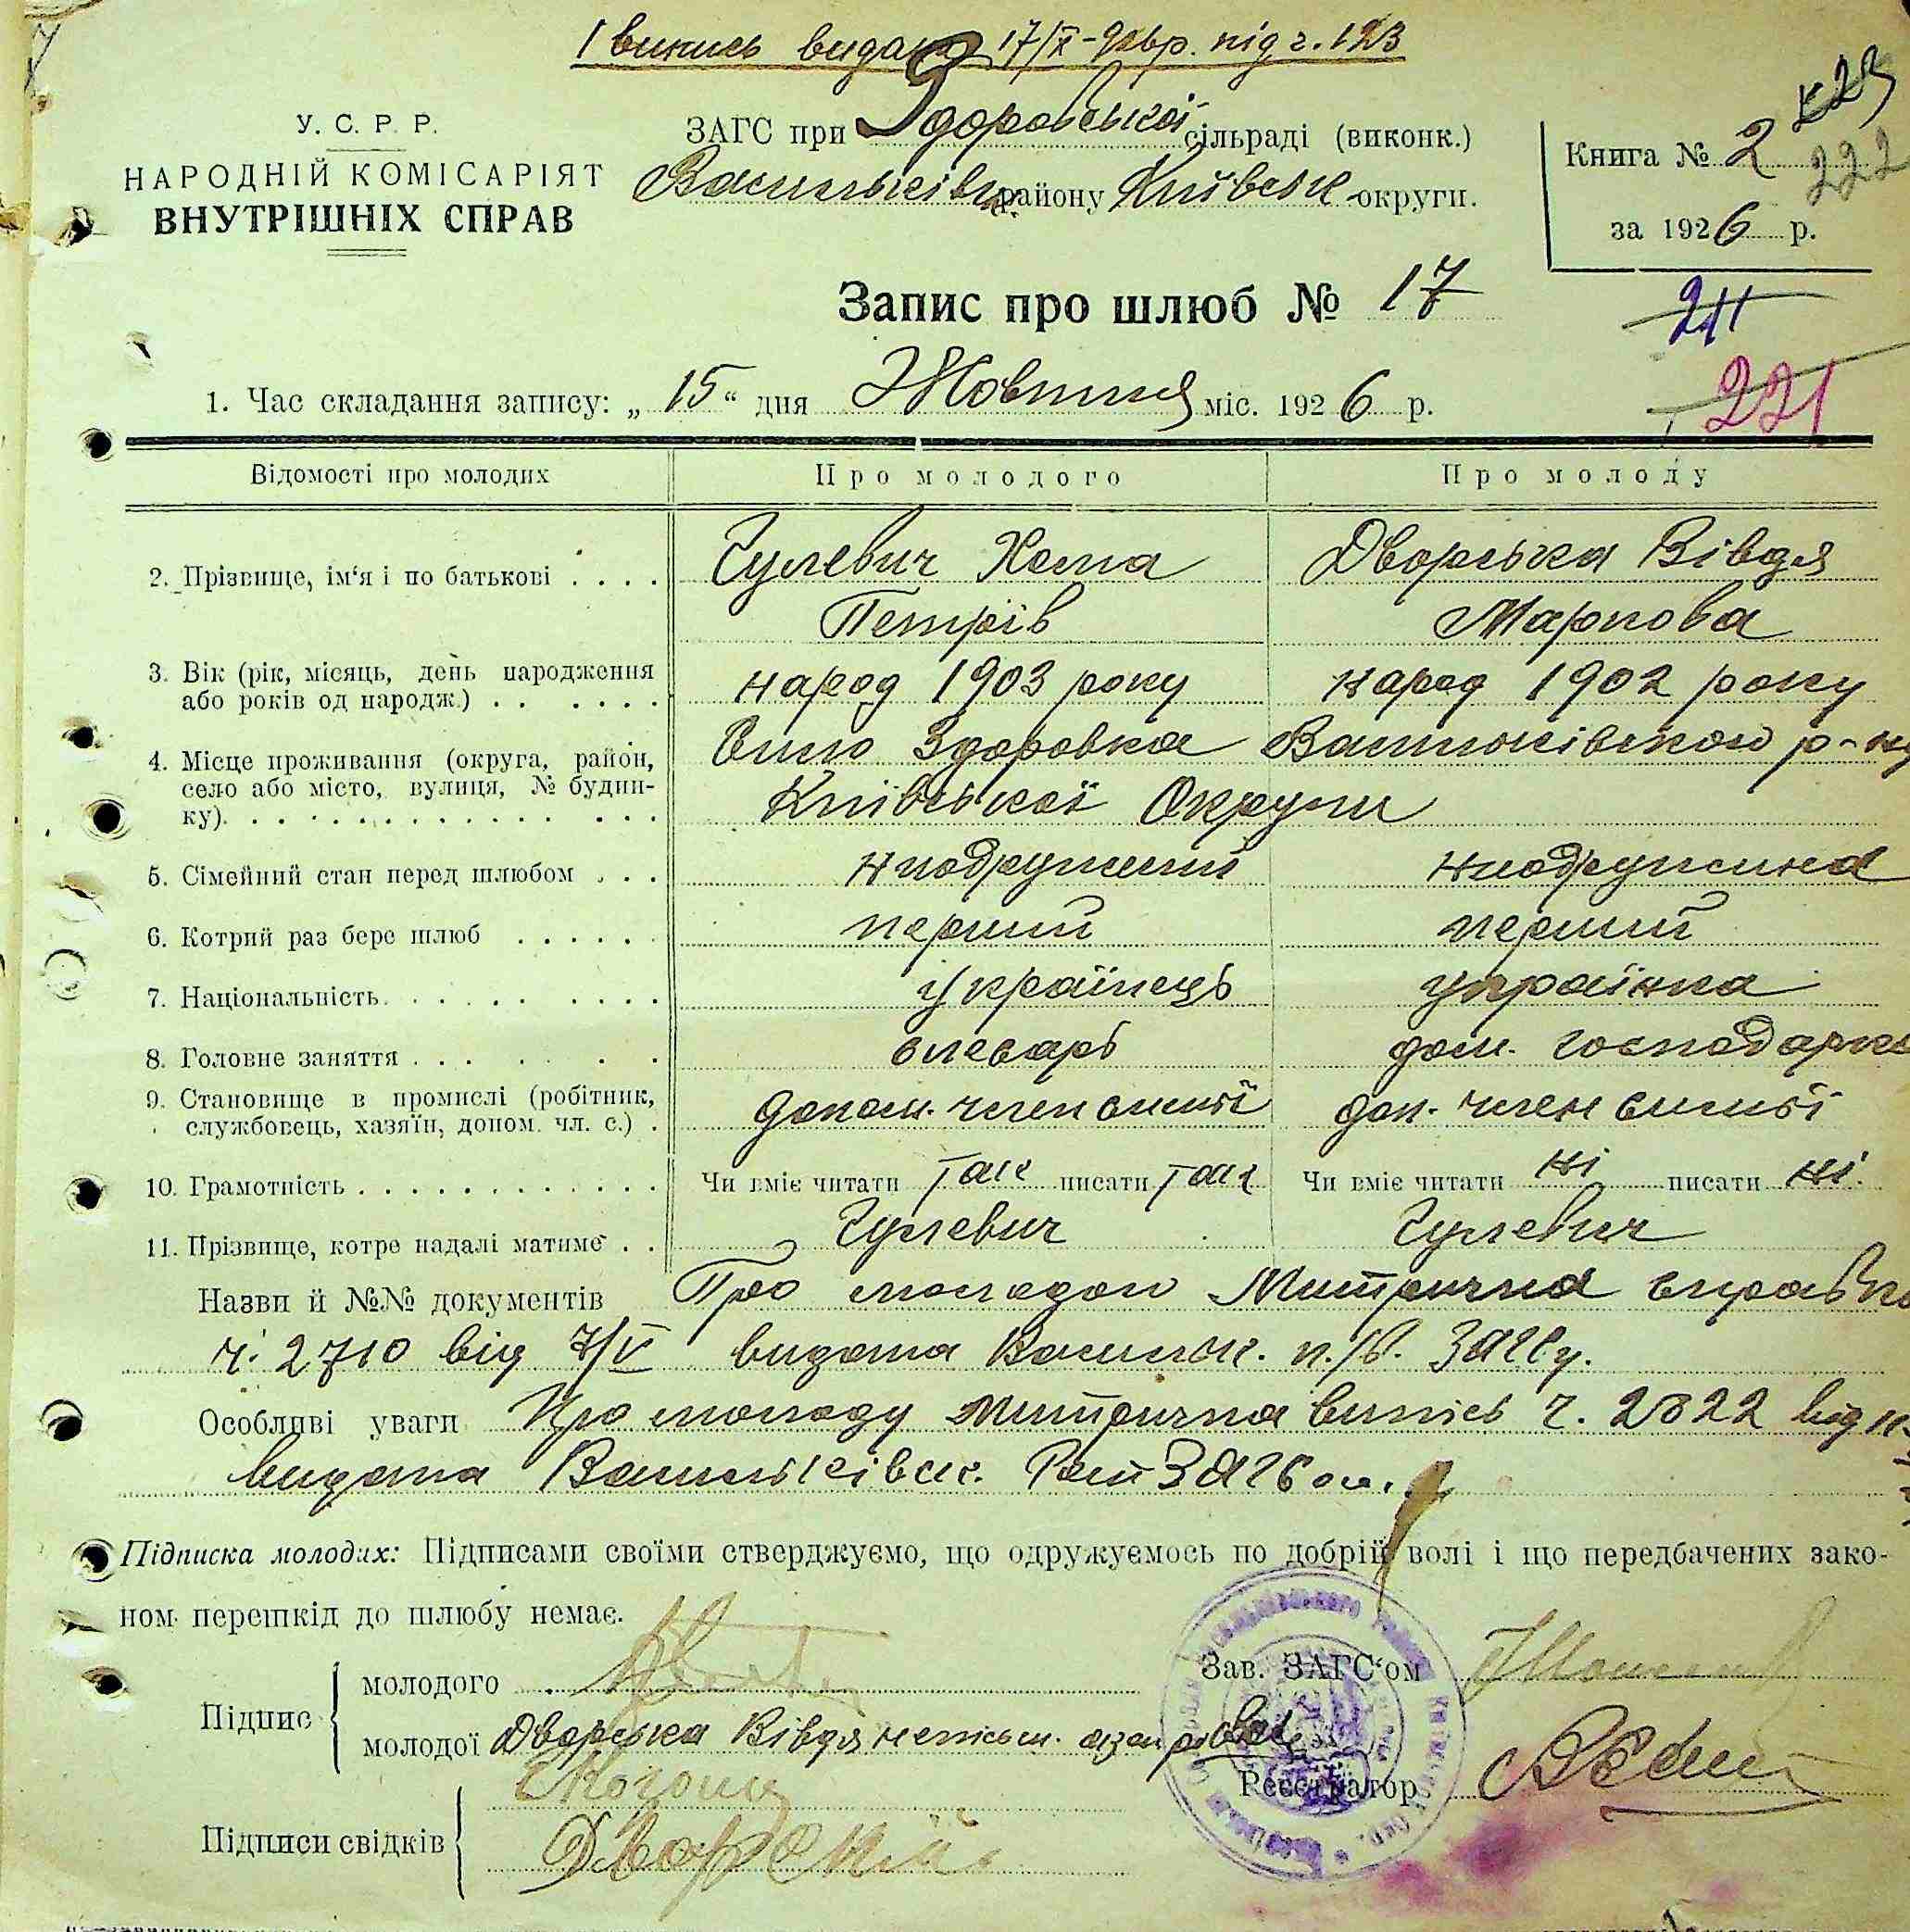 1 випись видана 17/X-26р. під ч. 123
У. С. Р. Р.
НАРОДНІЙ КОМІСАРІЯТ
ВНУТРІШНІХ СПРАВ
ЗАГС при Здоровській сільраді (виконк.)
Васильківськ. району Київськ округи.
Книга № 2
223
222
за 1926 р.
Запис про шлюб № 17
211
221
1. Час складання запису: „ 15 “ дня Жовтня міс. 1926 р.
Відомості про молодих Про молодого Про молоду
2. Прізвище, ім‘я і по батькові . . . . Гулевич Хома Дворська Вівдя
Петрів Маркова
3. Вік (рік, місяць, день народження народ 1903 року народ 1902 року
або років од народж.) . . . . . .
4. Місце проживання (округа, район, Село Здоровка Васильківського р-ну
село або місто, вулиця, № будин-
ку). . . . . . . . . . . . . . . Київської Округи
5. Сімейний стан перед шлюбом . . . неодружений неодружена
6. Котрий раз бере шлюб . . . . . . перший перший
7. Національність. . . . . . . . . українець українка
8. Головне заняття . . . . . . слесарь дом. господарка
9. Становище в промислі (робітник, допом. член сімьї доп. член сімьї
службовець, хазяїн, допом. чл. с.) .
10. Грамотність . . . . . . . . . . . . Чи вміє читати так писати так Чи вміє читати ні писати ні.
11. Прізвище, котре надалі матиме . . Гулевич Гулевич
Назви й №№ документів Про молодого Митрична справка
ч. 2710 від 7/V видана Васильк. ЗАГСу.
Особливі уваги Про молоду митрична випісь ч. 2822 від
видана Васильківск. Рай ЗАГСом.
Підписка молодих: Підписами своїми стверджуємо, що одружуємось по добрій волі і що передбачених зако-
ном перешкід до шлюбу немає.
Підпис молодого
Зав. ЗАГС‘ом
молодої Дворська Вівдя неписьм.
Реєстратор
Підписи свідків
Дворський